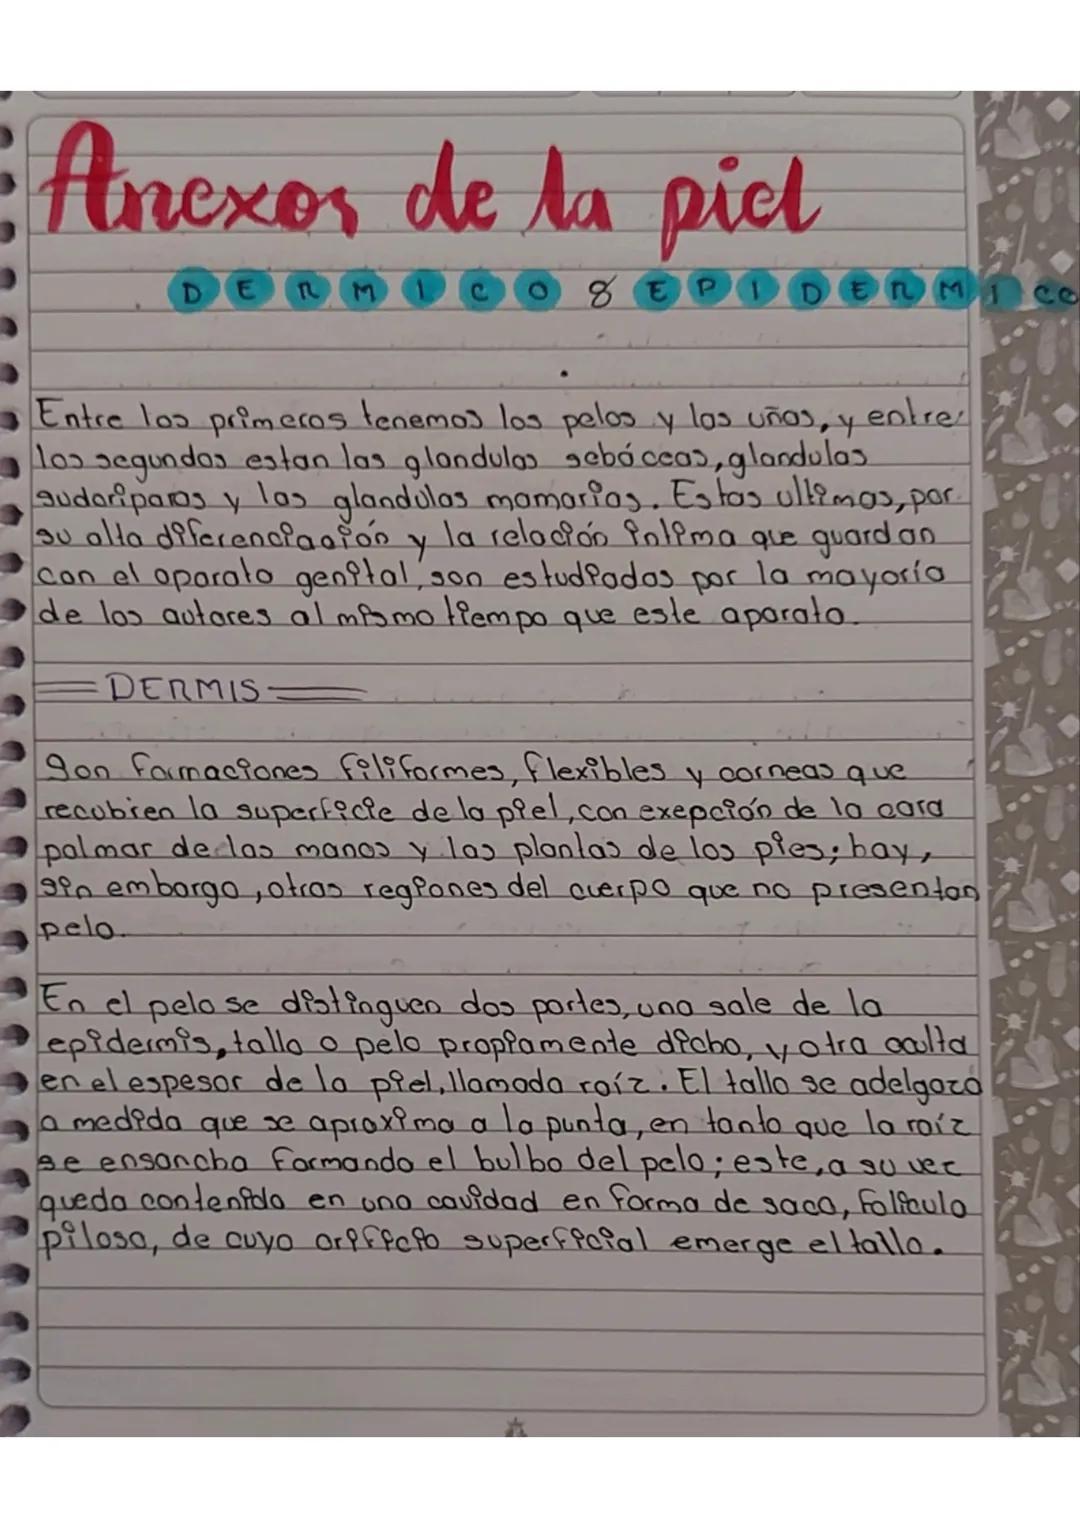 Anexos de la piel
DERMICO & EPIDERMICO
Entre los primeros tenemos los pelos y las uñas, y entre
los segundos estan las glandulas sebáceas, glandulas
sudaríparas y las glandulas mamarias. Estas ultimas, por
su alta diferenciación y la relación intima que guardan
con el aparato genital, son estudiadas por la mayoría
de los autores al mismo tiempo que este aparato.
DERMIS
Son formaciones filiformes, flexibles y corneas que
recubren la superficie de la piel, con exepción de la cara
palmar de las manos y las plantas de los pies; hay,
sin embargo, otras regiones del cuerpo que no presentan
pelo.
En el pelo se distinguen dos partes, una sale de la
epidermis, tallo o pelo propiamente dicho, y otra oculta
en el espesor de la piel, llamada raíz. El tallo se adelgaza
a medida que se aproxima a la punta, en tanto que la raíz
se ensancha formando el bulbo del pelo; este, a su vez
queda contenido en una cavidad en forma de saco, Folículo
piloso, de cuyo orificio superficial emerge el tallo.